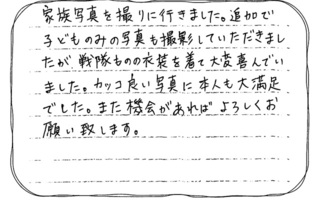 家族写真を撮りに行きました。追加で
子どものみの写真も撮影していただきまし
たが戦隊ものの衣装を着て大変喜んでい
ました。カッコ良い写真に本人も大満足
でした。また機会があればよろしくお
願い致します。